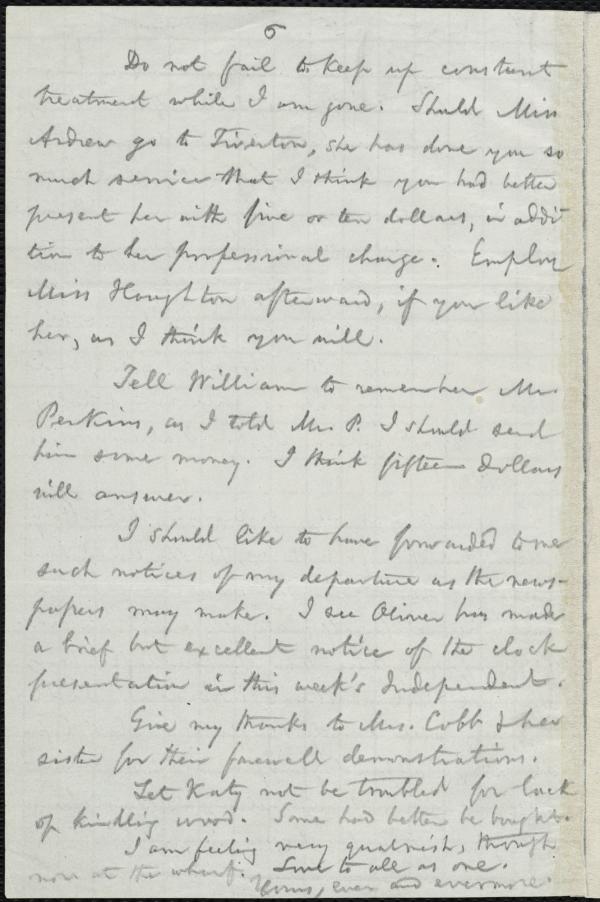 6
Do not fail to keep up constant
treatment while I am gone. Should Miss
Andrew go to Tiverton, she has done you so
much service that I think you had better
present her with five or ten dollars, in addi-
tion to her professional charge. Employ
Miss Houghton afterward, if you like
her, as I think you will.
Tell William to remember Mr.
Perkins, as I told Mr. P. I should send
him some money. I think fifteen dollars
will answer.
I should like to have forwarded to me
such notices of my departure as the news-
papers may make. I see Oliver has made
a brief but excellent notice of the clock
presentation in this week's Independent.
Give my thanks to Mrs. Cobb & her
sister for their farewell demonstrations.
Let Katy not be troubled for lack
of kindling wood. Some had better be bought.
I am feeling very qualmish, though
now at the wharf. Love to all as one.
Yours, ever and evermore.